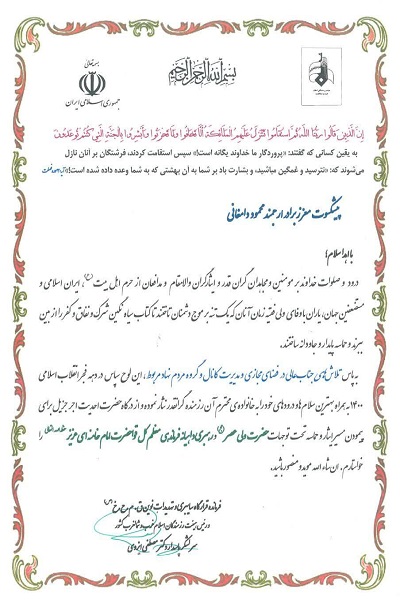 بسمه تعالی
جمهوری اسلامی ایران
بسم الله الرحمن الرحیم
إِنَّ الَّذِينَ قَالُوا رَبُّنَا اللَّهُ ثُمَّ اسْتَقَامُوا تَتَنَزَّلُ عَلَيْهِمُ الْمَلَائِكَةُ أَلَّا تَخَافُوا وَلَا تَحْزَنُوا وَأَبْشِرُوا بِالْجَنَّةِ الَّتِي كُنْتُمْ تُوعَدُونَ
به یقین کسانی که گفتند: «پروردگار ما خداوند یگانه است!» سپس استقامت کردند، فرشتگان بر آنان نازل
می‌شوند که: «نترسید و غمگین مباشید، و بشارت باد بر شما به آن بهشتی که به شما وعده داده شده است!»
پیشکسوت معزز برادر ارجمند محمود دامغانی
با اهداء سلام؛
درود و صلوات خداوند بر مومنین و مجاهدان گران قدر و ایثارگران والامقام و مدافعان از حرم اهل بیت (ع)، ایران اسلامی و
مستضعفین جهان، یاران باوفای ولی فقیه زمان آنان که یک تنه بر موج دشمنان تاختند تا کتاب سیاه ننگین شرک و نفاق و کفر را از بین
ببرند و حماسه پایدار و جاودانه ساختند.
به پاس تلاش‌های جنابعالی در فضای مجازی و مدیریت کانال و گروه مردم نهاد مربوط، این لوح سپاس در دهه فجر انقلاب اسلامی
۱۴۰۰ به همراه بهترین سلام‌ها و درودهای خود را به خانواده‌ی محترم آن رزمنده گرانقدر نثار نموده و از درگاه حضرت احدیت اجر جزیل برای
پیمودن مسیر ایثار و حماسه تحت توجهات حضرت ولی عصر (عج) و رهبری داهیانه فرماندهی معظم کل قوا حضرت امام خامنه‌ای عزیز را
خواستارم. ان شاء الله موید و منصور باشید.
فرمانده قرارگاه سایبری و تهدیدات نوین
و رئیس هیئت رزمندگان اسلام جنوب و شمالغرب کشور
سرلشگر پاسدار دکتر مصطفی ایزدی